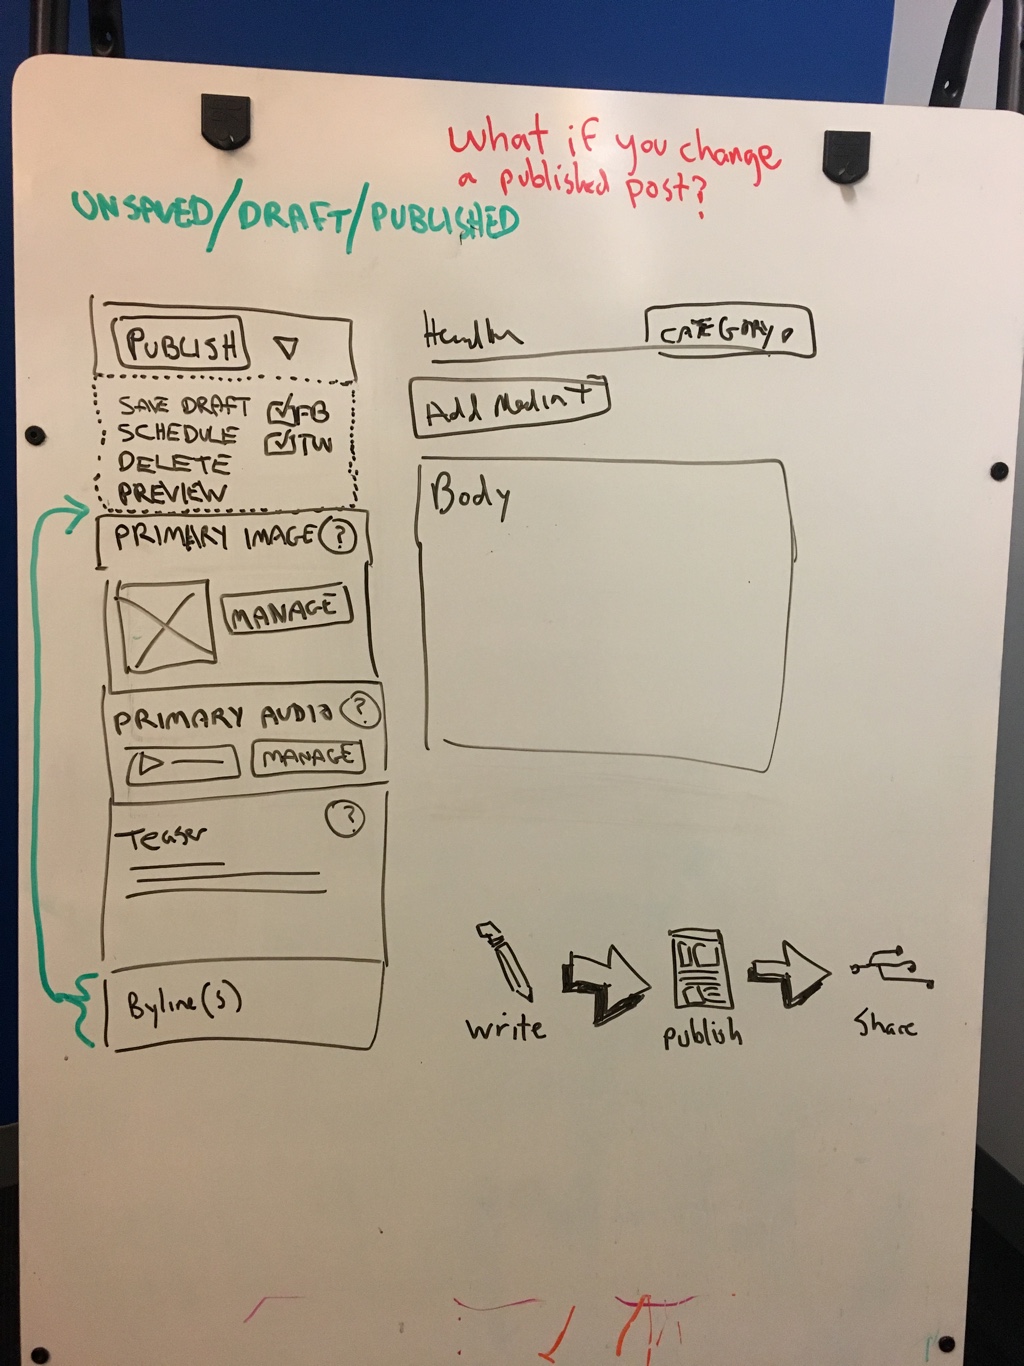 What if you change
a published post?
UNSAVED/DRAFT/PUBLISHED
PUBLISH
SAVE DRAFT FB
SCHEDULE TW
DELETE
PREVIEW
PRIMARY IMAGE ?
MANAGE
PRIMARY AUDIO ?
MANAGE
Teaser ?
Byline(s)
CATEGORY
Add Media +
Body
write
publish
Share